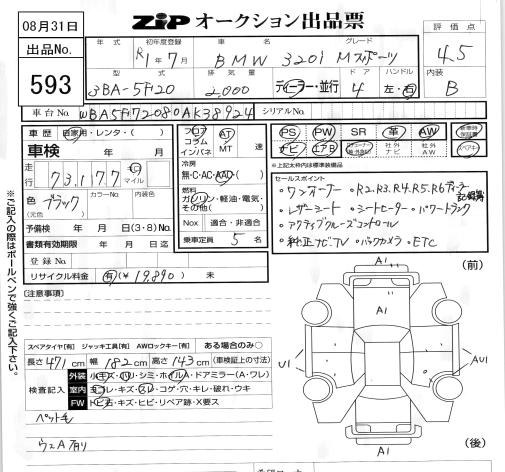 08月31日
ZIP オークション出品票
評価点
4.5
内装
B
出品No.
593
年式 初年度登録 車名 グレード
R1年7月 BMW 320i Mスポーツ
型式 排気量 ドア ハンドル
3BA-5F20 2,000 ディーラー・並行 4 左・右
車台No. WBA5F72080AK38924 シリアルNo.
車歴 自家用・レンタ・( )
車検 年 月
走行 73,177 km マイル
色 ブラック カラーNo. 内装色
(元色)
予備検 年 月 日(3・8)No.
書類有効期限 年 月 日迄
登録No.
リサイクル料金 有(¥19,890) 未
フロア AT
コラム
インパネ MT 速
冷房
無・C・AC・AAC・( )
燃料
ガソリン・軽油・電気・
その他( )
Nox 適合・非適合
乗車定員 5 名
PS PW SR 革 AW 新車時保証書
ナビ エアB 社外ナビ 社外AW スペアキー
*上記太枠内は標準装備品
セールスポイント
・ワンオーナー ・R2.R3.R4.R5.R6ディーラー記録簿
・レザーシート ・シートヒーター ・パワートランク
・アクティブクルーズコントロール
・純正ナビTV ・バックカメラ ・ETC
※ご記入の際はボールペンで強くご記入下さい。
[注意事項]
スペアタイヤ[有] ジャッキ工具[有] AWロックキー[有] ある場合のみ○
長さ471cm 幅182cm 高さ143cm (車検証上の寸法)
検査記入
外装 小キズ・凹・シミ・ホイルA・ドアミラー(A・ワレ)
室内 ヨゴレ・キズ・スレ・コゲ・穴・キレ・破れ・ウキ
FW トビ石・キズ・ヒビ・リペア跡・X要ス
ペット毛
ウエA有り
(前)
A1
A1
U1
AU1
A1
(後)